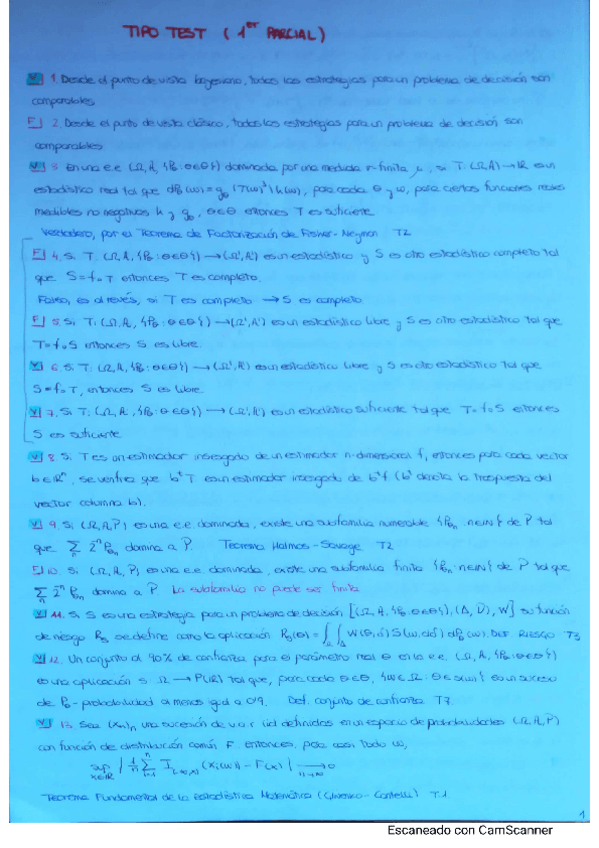 TIPO TEST (1er PARCIAL)
V 1. Desde el punto de vista bayesiano, todas las estrategias para un problema de decisión son
comparables
F 2. Desde el punto de vista clásico, todas las estrategias para un problema de decisión son
comparables
V 3. En una e.e (Ω, A, {Pθ: θ∈Θ}) dominada por una medida σ-finita μ, si T: (Ω,A) → R es un
estadístico real tal que dPθ(ω) = gθ(T(ω)³) h(ω), para cada θ y ω, para ciertas funciones reales
medibles no negativas h y gθ, θ∈Θ entonces T es suficiente
Verdadero, por el Teorema de Factorización de Fisher-Neyman T2
F 4. Si T: (Ω, A, {Pθ: θ∈Θ}) → (Ω', A') es un estadístico y S es otro estadístico completo tal
que S = f∘T entonces T es completo.
Falso, es al revés, si T es completo → S es completo
F 5. Si T: (Ω, A, {Pθ: θ∈Θ}) → (Ω', A') es un estadístico libre y S es otro estadístico tal que
T = f∘S entonces S es libre.
V 6. Si T: (Ω, A, {Pθ: θ∈Θ}) → (Ω', A') es un estadístico libre y S es otro estadístico tal que
S = f∘T, entonces S es libre.
V 7. Si T: (Ω, A, {Pθ: θ∈Θ}) → (Ω', A') es un estadístico suficiente tal que T = f∘S entonces
S es suficiente
V 8. Si T es un estimador insesgado de un estimador n-dimensional f, entonces para cada vector
b∈Rⁿ, se verifica que bᵗT es un estimador insesgado de bᵗf (bᵗ denota la traspuesta del
vector columna b).
V 9. Si (Ω, A, P) es una e.e dominada, existe una subfamilia numerable {Pθn: n∈N} de P tal
que Σn 2⁻ⁿ Pθn domina a P. Teorema Halmos-Savage T2
F 10. Si (Ω, A, P) es una e.e dominada, existe una subfamilia finita {Pθn: n∈N} de P tal que
Σn 2⁻ⁿ Pθn domina a P. La subfamilia no puede ser finita
V 11. Si S es una estrategia para un problema de decisión [(Ω, A, {Pθ: θ∈Θ}), (Δ, D), W] su función
de riesgo Rs se define como la aplicación Rs(θ) = ∫Ω ∫Δ W(θ,δ) S(ω,dδ) dPθ(ω). Def. RIESGO T3
V 12. Un conjunto al 90% de confianza para el parámetro real θ en la e.e. (Ω, A, {Pθ: θ∈Θ})
es una aplicación s: Ω → P(R) tal que, para cada θ∈Θ, {ω∈Ω: θ∈s(ω)} es un suceso
de Pθ-probabilidad al menos igual a 0'9. Def. conjunto de confianza T7.
V 13. Sea (Xn)n una sucesión de v.a.r iid definidas en un espacio de probabilidades (Ω, A, P)
con función de distribución común F. Entonces, para casi todo ω,
sup x∈R | 1/n Σ i=1 n I]-∞,x] (Xi(ω)) - F(x) | → 0 n→∞
Teorema Fundamental de la Estadística Matemática (Glivenko-Cantelli) T1
1
Escaneado con CamScanner